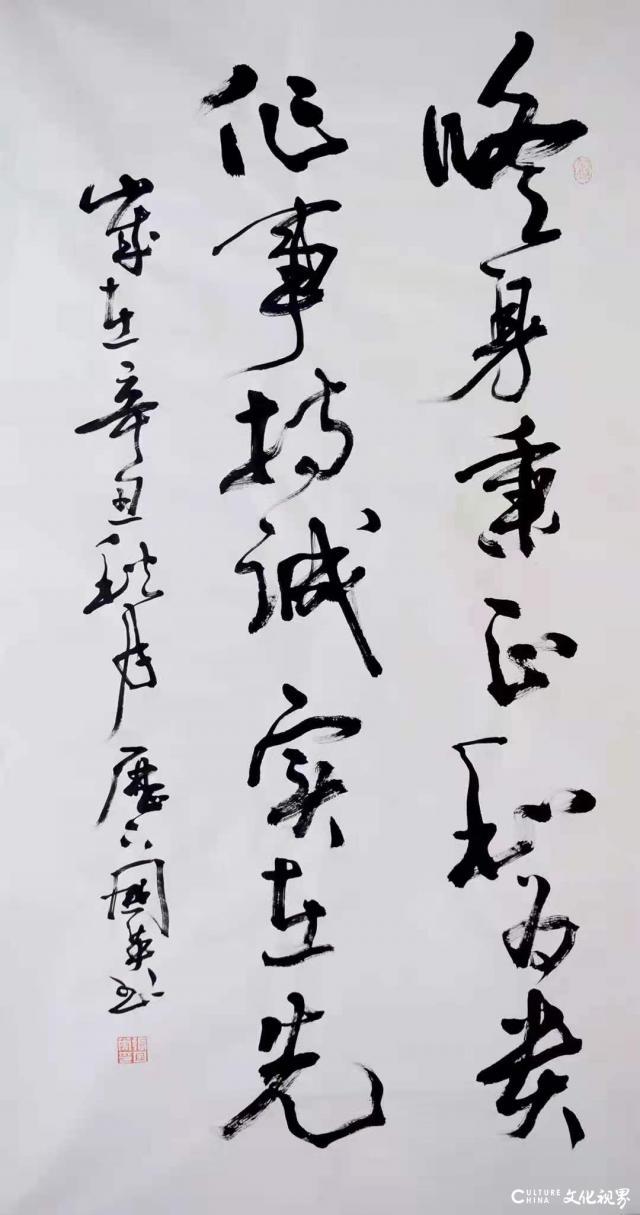 修身秉正和为贵
作事持诚实在先
岁在辛丑秋月历下国英书
CULTURE CHINA 文化视界